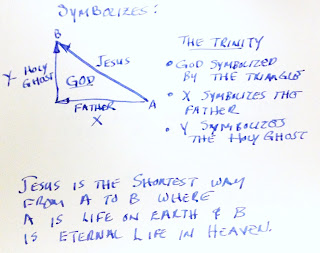 SYMBOLIZES:
B
Y HOLY GHOST
JESUS
GOD
FATHER
X
A
THE TRINITY
• GOD SYMBOLIZED
BY THE TRIANGLE
• X SYMBOLIZES THE
FATHER
• Y SYMBOLIZES
THE HOLY GHOST
JESUS IS THE SHORTEST WAY
FROM A TO B WHERE
A IS LIFE ON EARTH & B
IS ETERNAL LIFE IN HEAVEN.